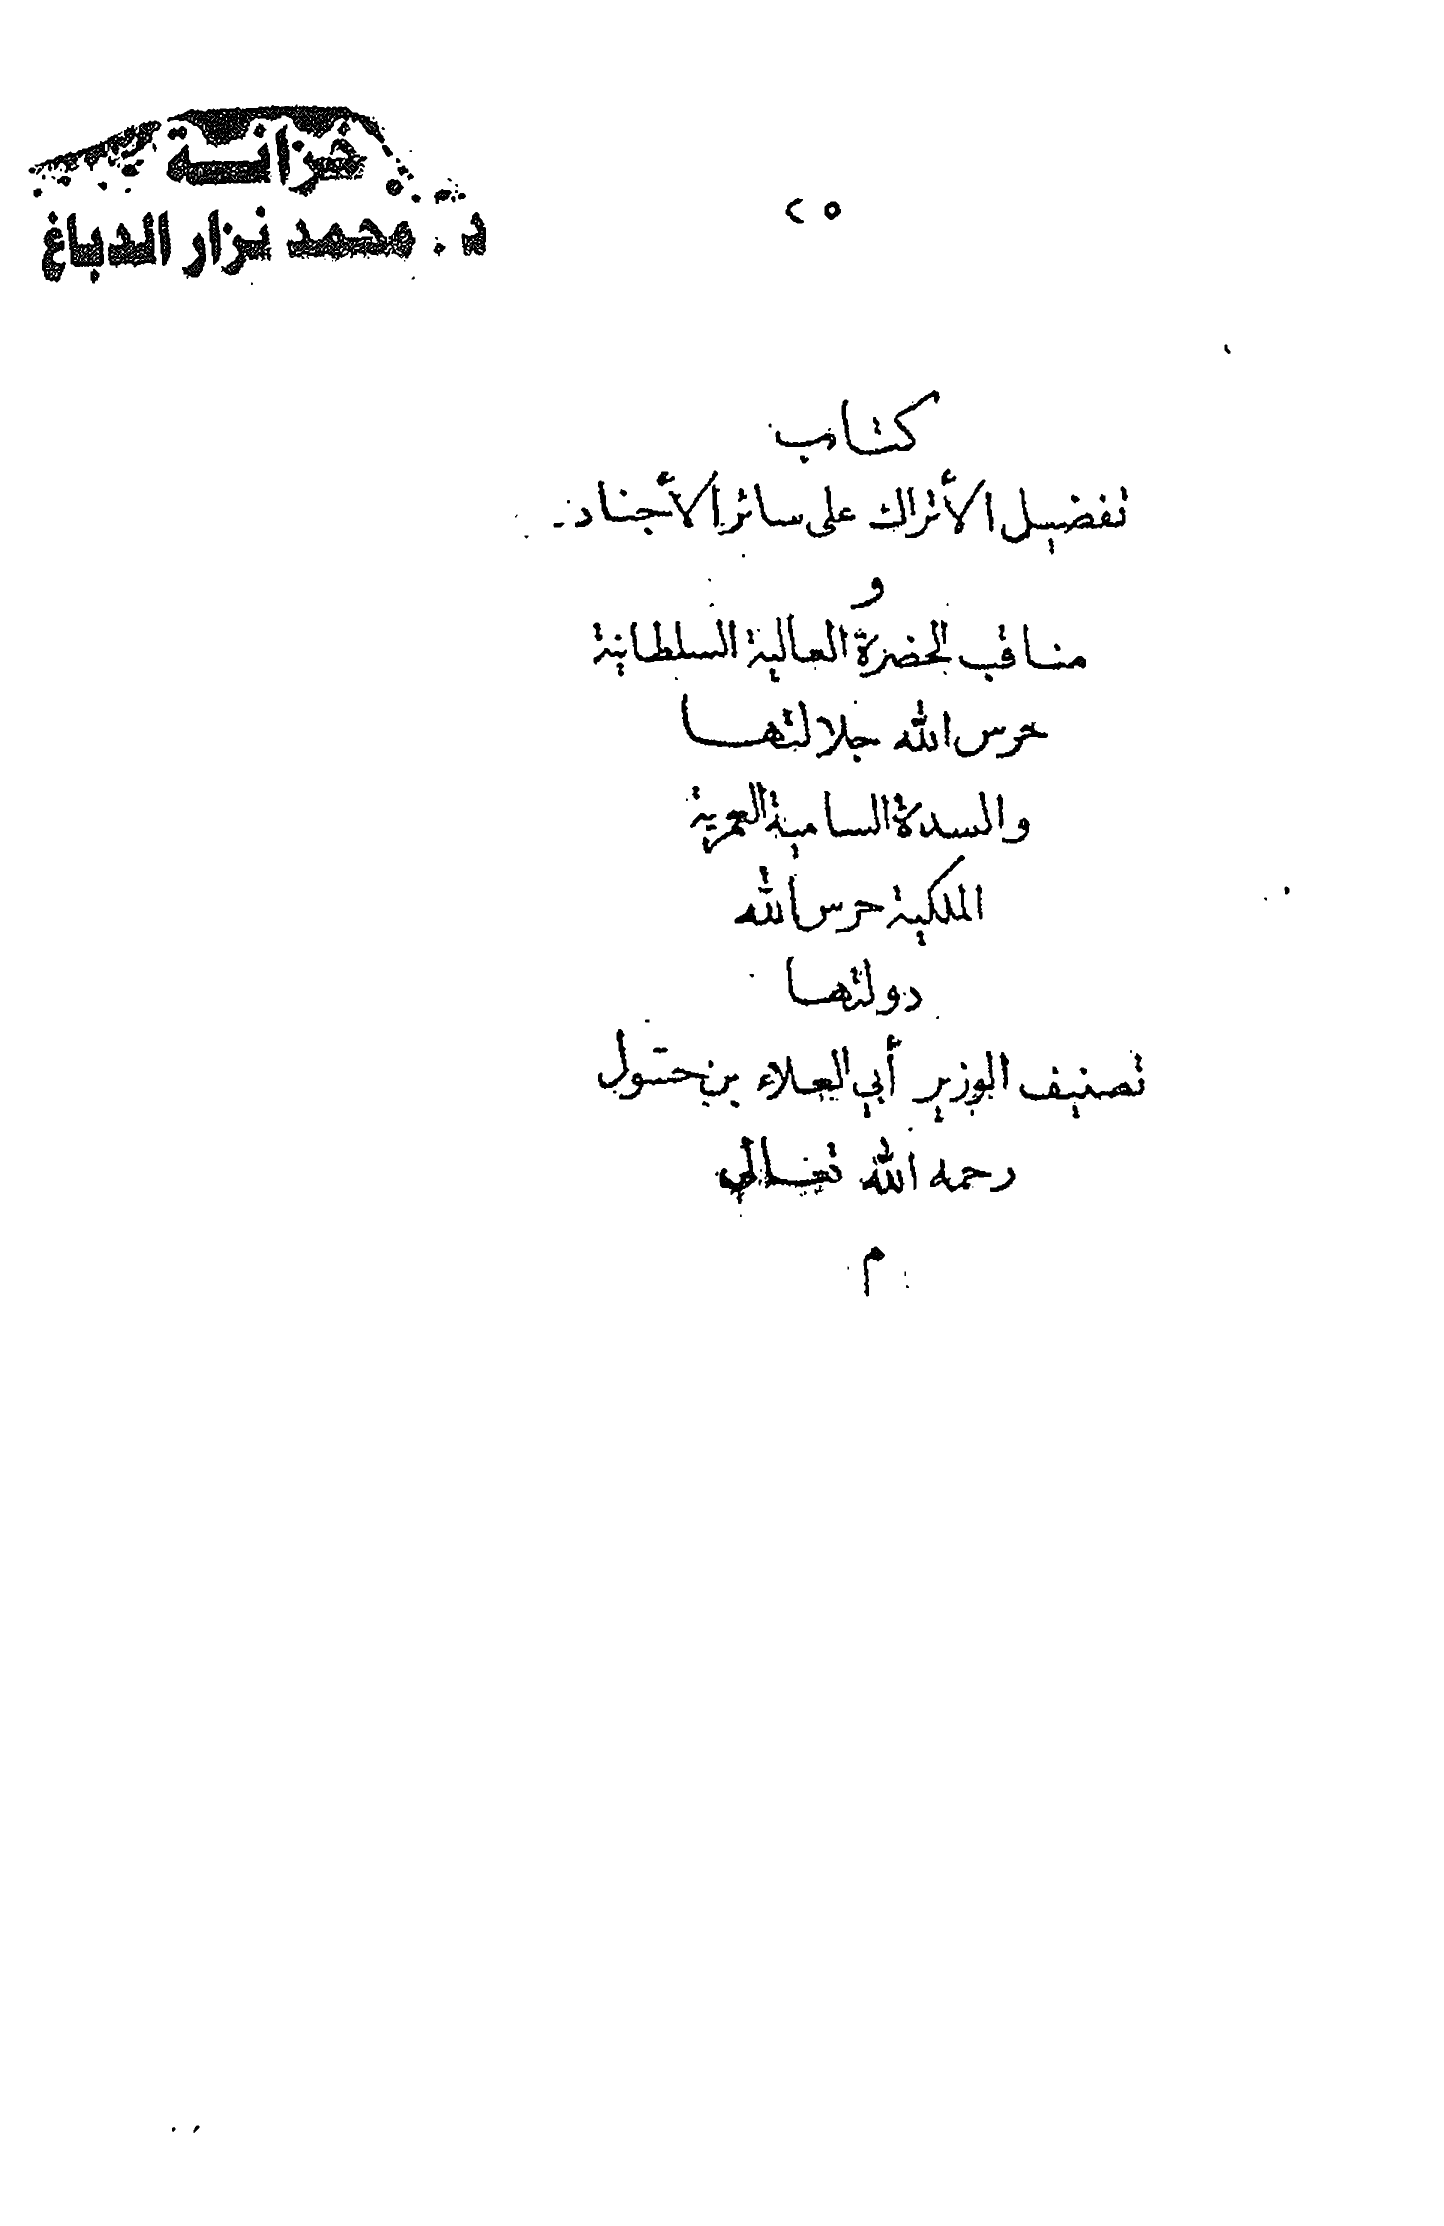 خزانة
د. محمد نزار الدباغ
٢٥
كتاب
تفضيل الأتراك على سائر الأجناد
و
مناقب الحضرة العالية السلطانية
حرس الله جلالتها
والسدة السامية العمرية
الملكية حرس الله
دولتها
تصنيف الوزير أبي العلاء بن حسول
رحمه الله تعالى
م